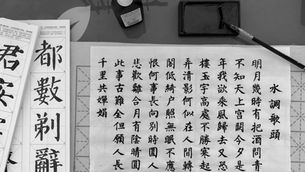 水調歌頭
明月幾時有把酒問青
不知天上宮闕今夕是
年我欲乘風歸去又恐
樓玉宇高處不勝寒起
弄清影何似在人間轉
閣低綺戶照無眠不應
恨何事長向別時圓人
悲歡離合月有陰晴圓
此事古難全但願人長
千里共嬋娟
都數剃辭
君安